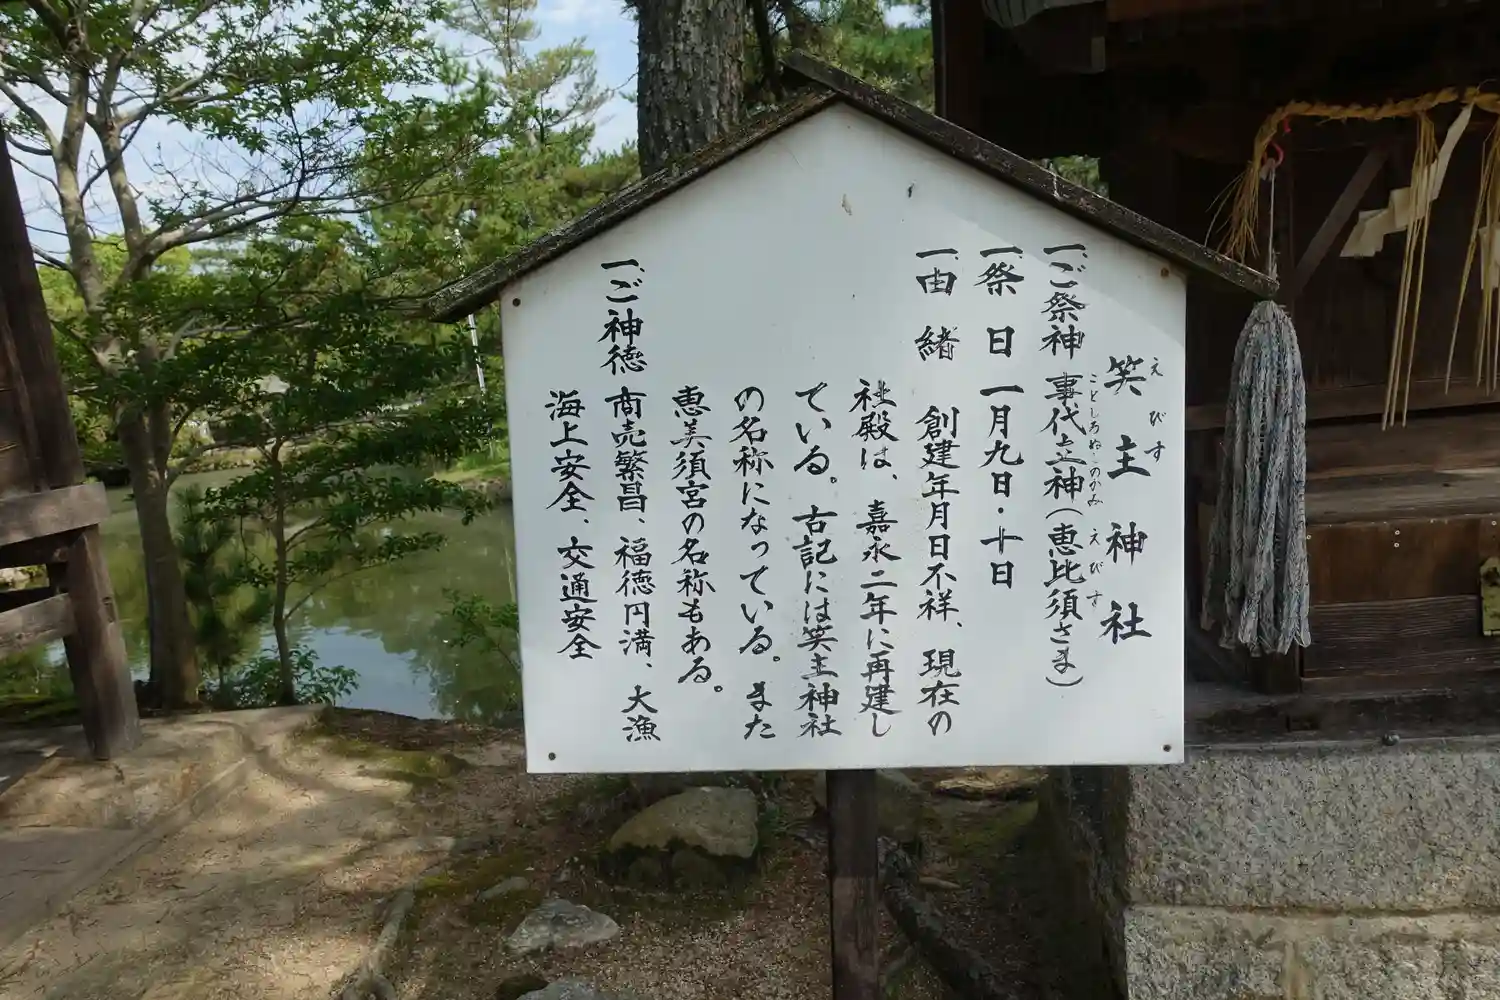 笑主神社
えびす
一、ご祭神 事代主神（恵比須さま）
ことしろぬしのかみ えびす
一、祭日 一月九日・十日
一、由緒 創建年月日不祥、現在の
社殿は、嘉永二年に再建し
ている。古記には笑主神社
の名称になっている。また
恵美須宮の名称もある。
一、ご神徳 商売繁昌、福徳円満、大漁
海上安全、交通安全